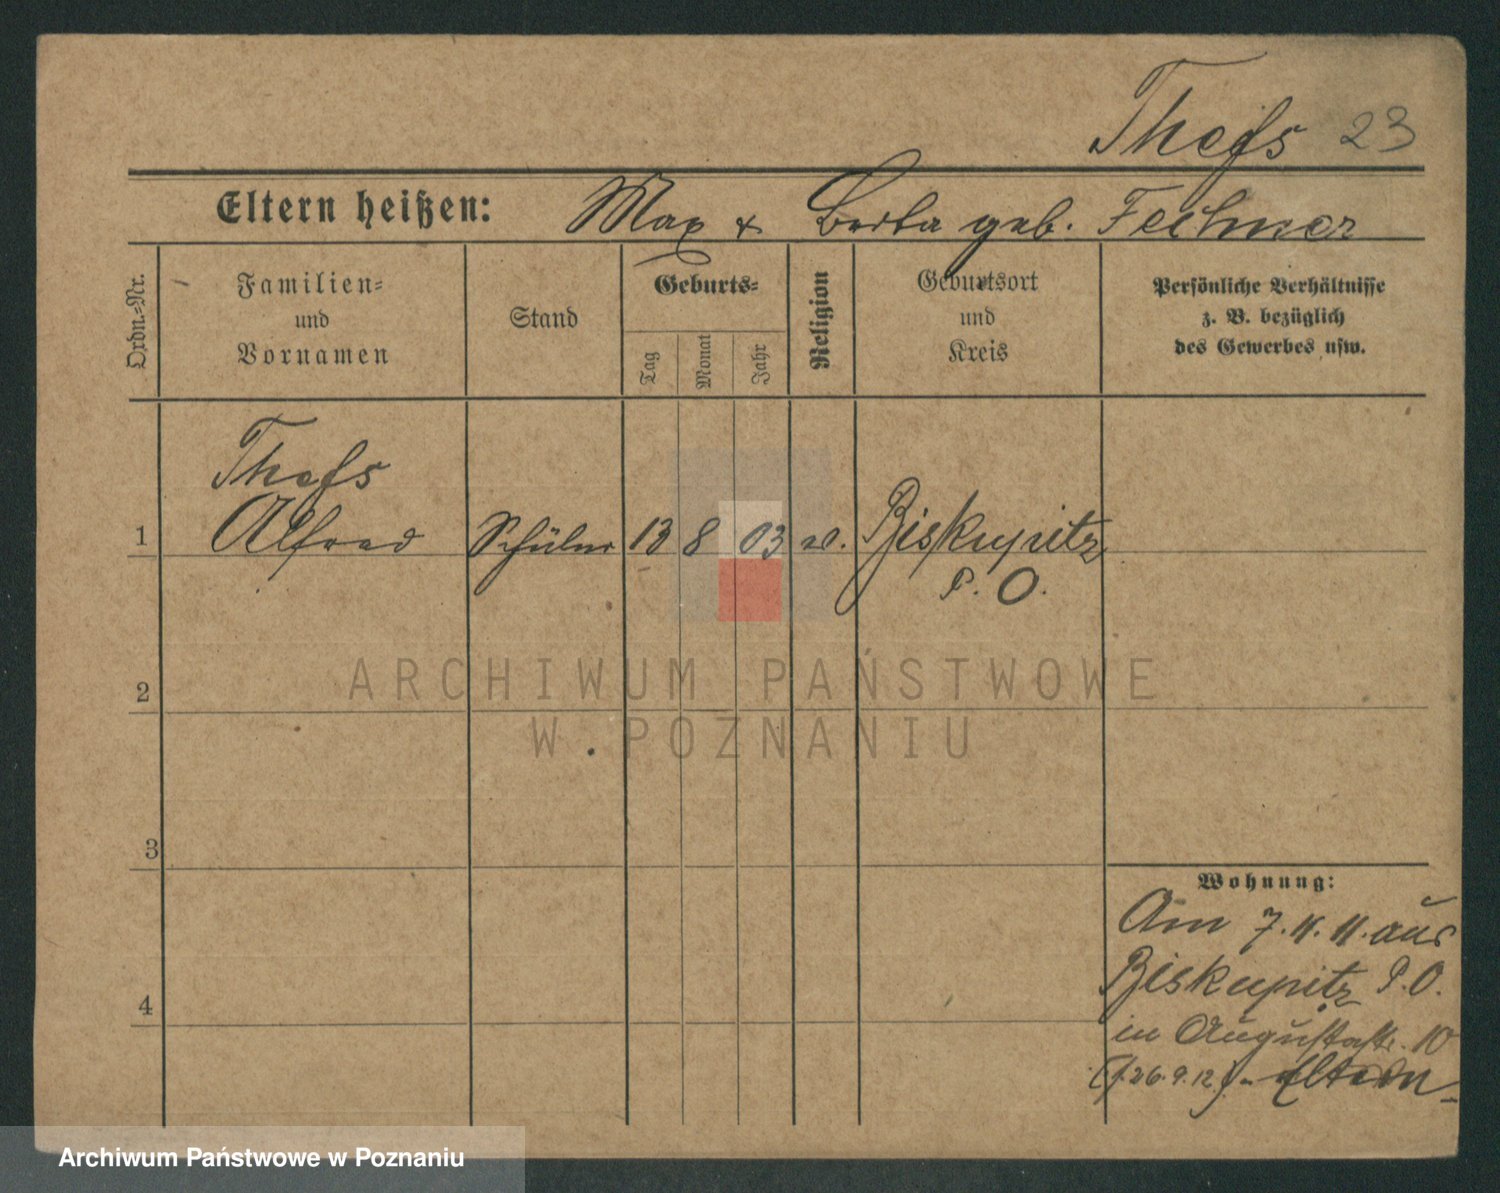 Thefs 23
Eltern heißen: Max & Berta geb. Fechner
Ordn.-Nr.
Familien-
und
Vornamen
Stand
Geburts-
Tag
Monat
Jahr
Religion
Geburtsort
und
Kreis
Persönliche Verhältnisse
z. B. bezüglich
des Gewerbes usw.
Thefs
1 Alfred Schüler 13 8 03 Biskupitz
P. O.
2
3
4
Wohnung:
Am 7. 4. 11. aus
Biskupitz P. O.
in Augustastr. 10
(f. 26.9.12.) Eltern
ARCHIWUM PAŃSTWOWE
W POZNANIU
Archiwum Państwowe w Poznaniu